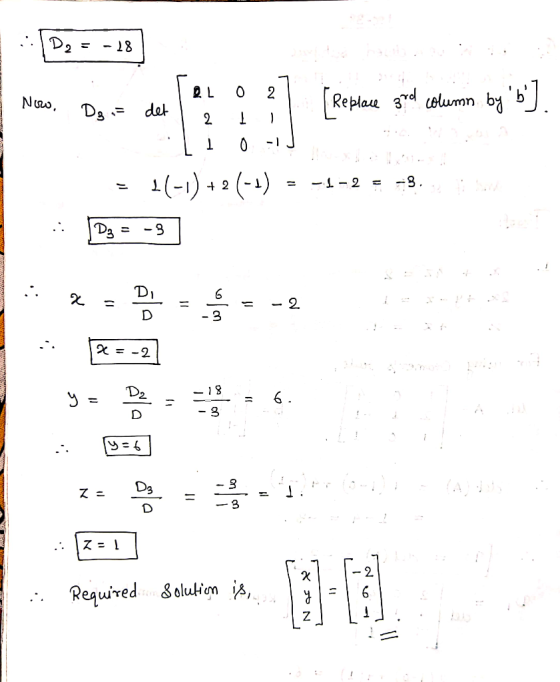 ∴ D₂ = -18
Now, D₃ = det [ 1 0 2
2 1 1
1 0 -1 ] [Replace 3rd column by 'b'].
= 1(-1) + 2(-1) = -1-2 = -3.
∴ D₃ = -3
∴ x = D₁/D = 6/-3 = -2
∴ x = -2
y = D₂/D = -18/-3 = 6.
∴ y = 6
z = D₃/D = -3/-3 = 1.
∴ z = 1
∴ Required Solution is, [ x y z ] = [ -2 6 1 ].